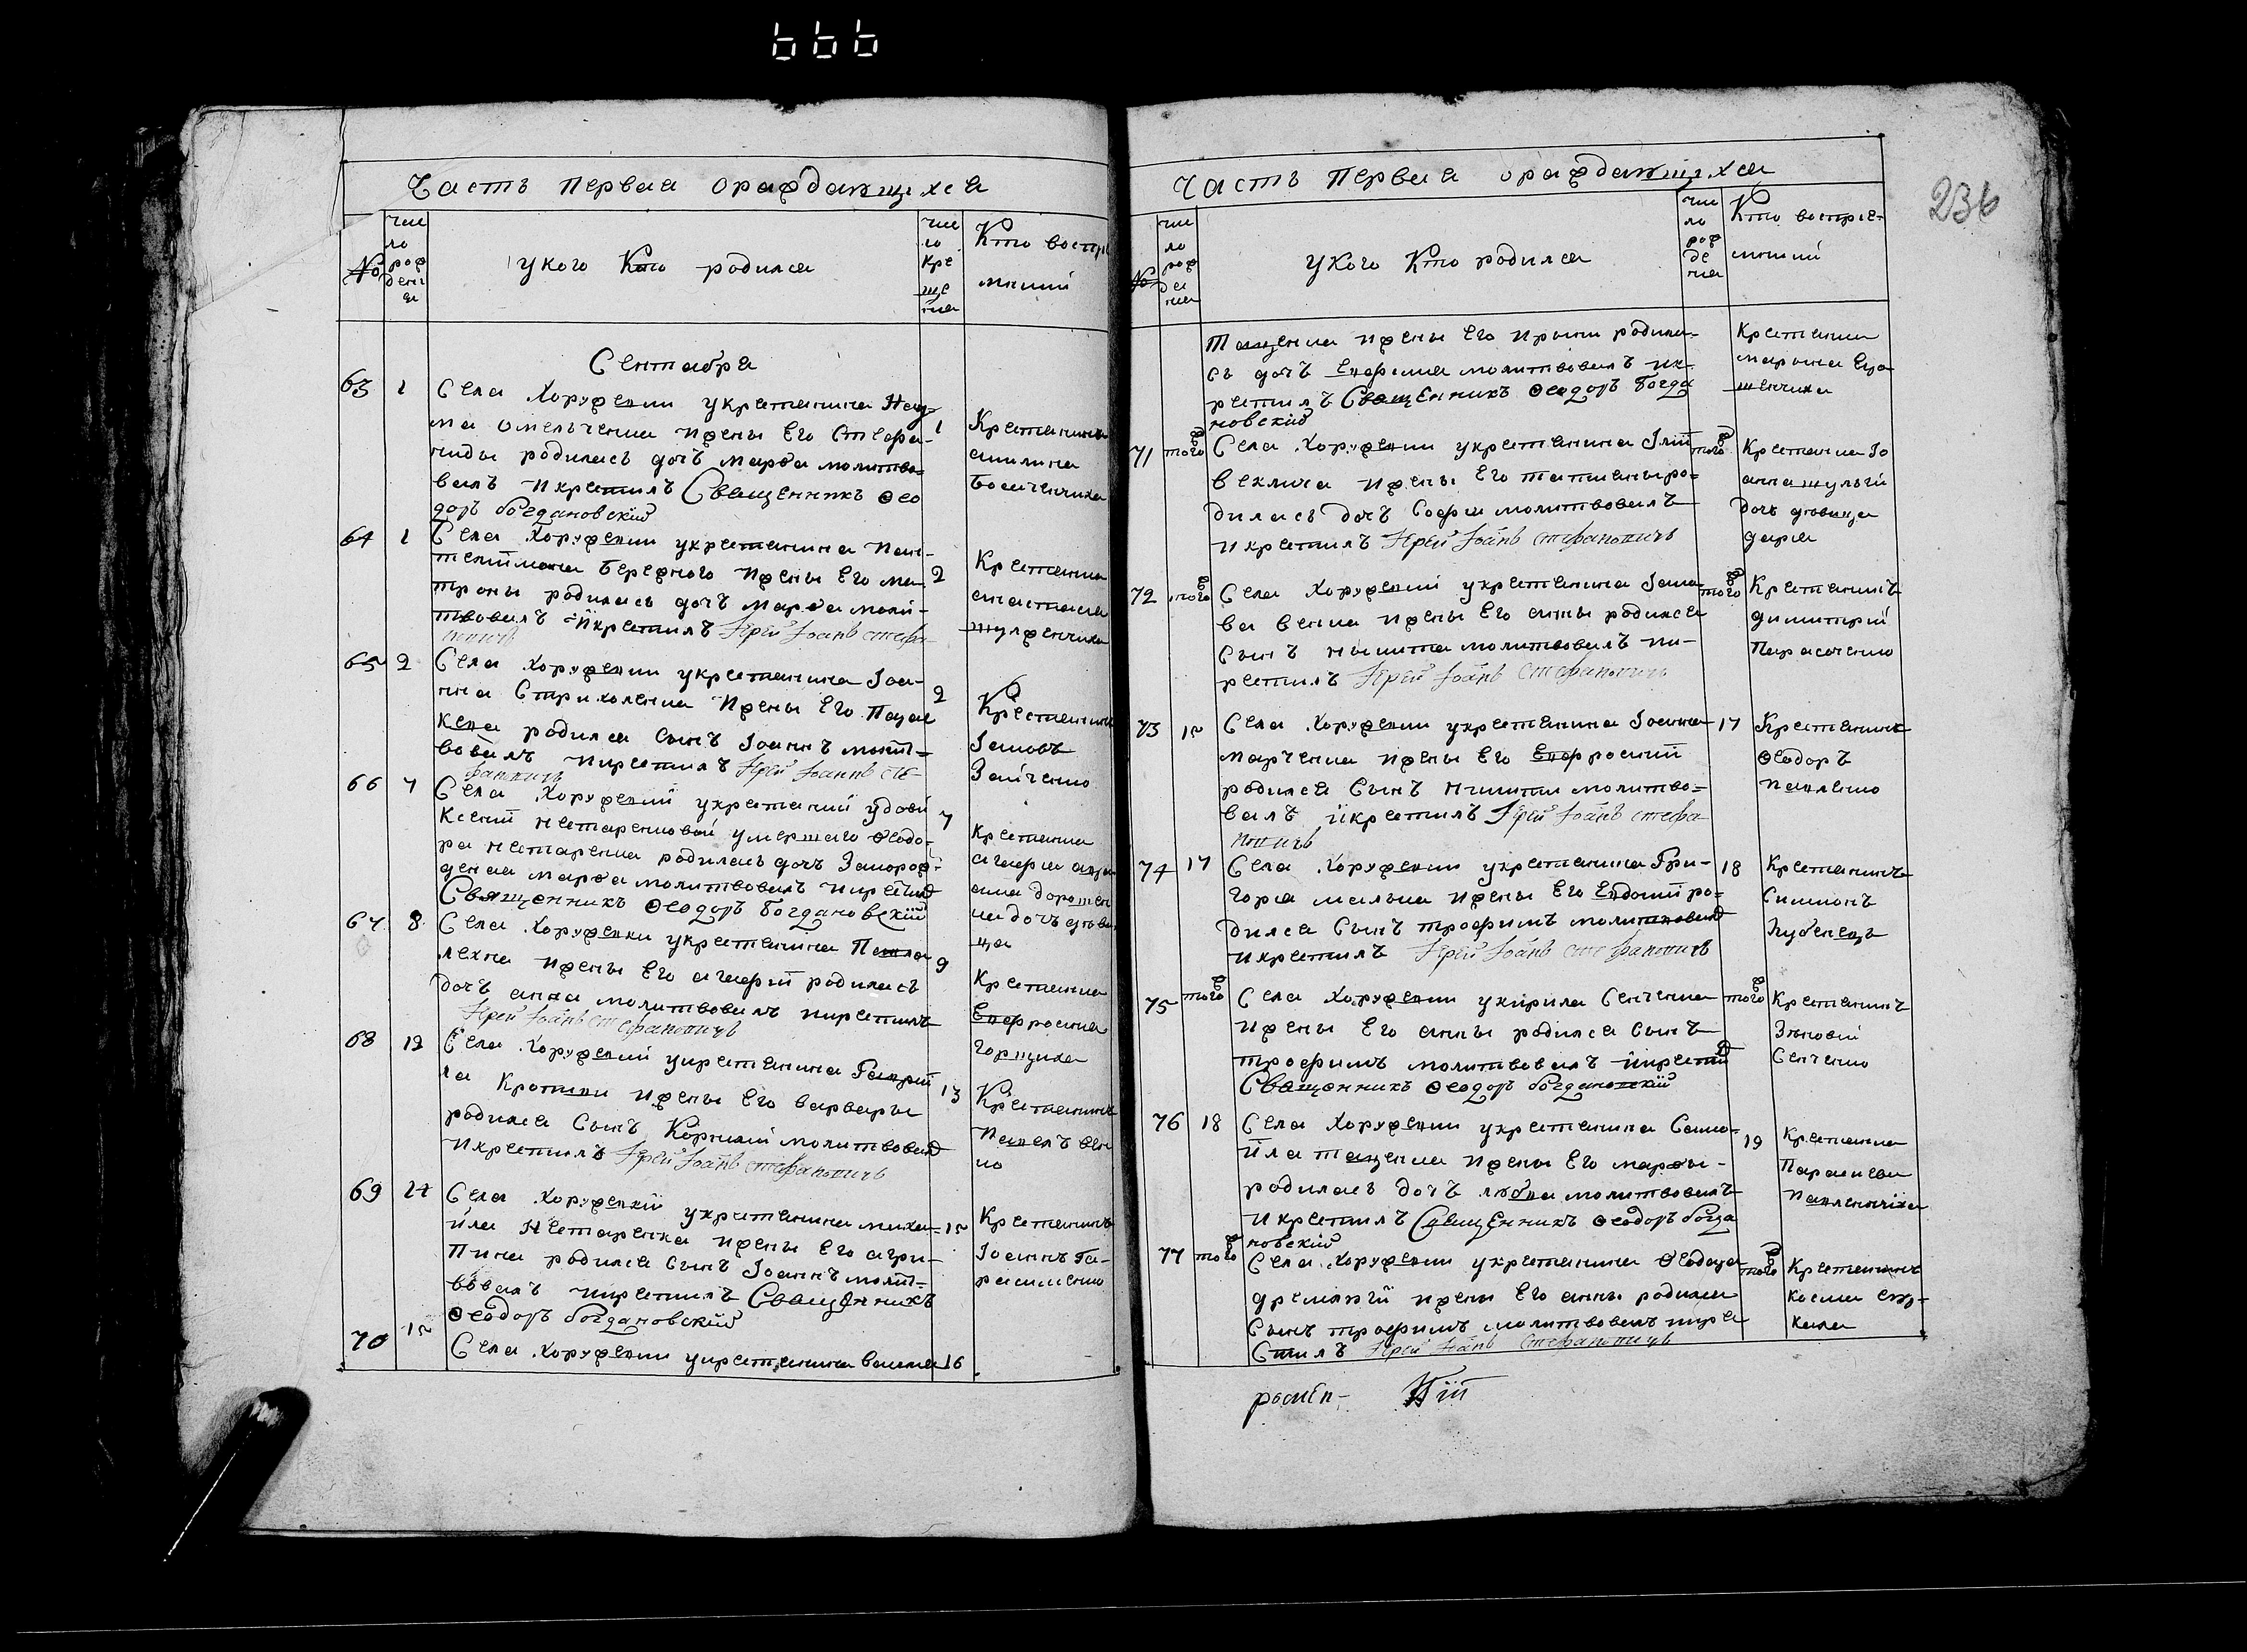 666
Часть первая ораждающихся
№
чис
ло
рож
дені
я
укого Кто родился
чис
ло
кре
ще
ния
Кто воспрі
мний
Сентабря
63 1 Села Хоружевки укрестанина Нау-
ма Омельченка ижены Его Стефа-
ниды родилась дочъ марѳа молитво-
валъ икрестилъ Священникъ Ѳео
доръ богдановскій
1 Крестанинка
акилина
64 1 Села Хоружевки укрестанина Пан-
телимона бережного ижены Его ма-
троны родилась дочъ марѳа моли-
твовалъ икрестилъ Іерей Іоанъ стефа-
новичъ
2 Крестанка
анастасия
65 2 Села Хоружевки укрестанина Іоа-
нна Стрихоленка ижены Его Парас
кева родилса сынъ Іоаннъ молит-
вовалъ икрестилъ Іерей Іоаннъ сте-
фановичъ
2 Крестанинъ
Іаковъ
Заїченко
66 7 Села Хоружевки укрестанки удовы
Ксении нестаренковой умершаго Ѳеодо-
ра нестаренка родилась дочъ Законорож-
деная марѳа молитвовалъ икрестил
Священникъ Ѳеодоръ богдановскій
7 Крестанка
агафиа
дочъ дѣви
ца
67 8 Села Хоружевки укрестанина Павла
лехна ижены Его агафии родилась
дочъ анна молитвовалъ икрестилъ
Іерей Іоанъ стефановичъ
9 Крестанка
Евфросина
горщиха
68 12 Села Хоружевки укрестанина Гаври
ла Кротики ижены Его варвары
родилса Сынъ Корнилій молитвовал
икрестилъ Іерей Іоанъ стефановичъ
13 Крестанинъ
Павелъ
69 14 Села Хоружевки укрестанина миха-
ила Нестаренка ижены Его агри-
пина родилса сынъ Іоаннъ молит-
вовалъ икрестилъ Священникъ
Ѳеодоръ богдановский
15 Крестанинъ
Іоаннъ Га-
расименко
70 15 Села Хоружевки укрестанина васила 16
Часть Первая ораждающихся
236
№
чис
ло
рож
де
ния
укого Кто родилса
чис
ло
рож
де
ния
Кто воспріе-
мний
Тащенка ижены Его Ирыны родила-
сь дочъ Евфимиа молитвовалъ ик-
рестилъ Священникъ Ѳеодоръ богда
новский
Крестанка
марына
71 тогож Села Хоружевки укрестанина Іли
веклича ижены Его татианы ро-
дилась дочъ Софиа молитвовалъ
икрестилъ Іерей Іоанъ стефановичъ
тогож Крестанина Іо
анна шульги
дочъ дѣвица
дариа
72 тогож Села Хоружевки укрестанина Іако-
ва венка ижены Его анны родилса
Сынъ никита молитвовалъ ик-
рестилъ Іерей Іоанъ стефановичъ
тогож Крестанинъ
димитрій
Парасенко
73 15 Села Хоружевки укрестанина Іоанна
марченка ижены Его Евфросини
родилса Сынъ никита молитво-
валъ икрестилъ Іерей Іоанъ стефа
новичъ
17 Крестанинъ
Ѳеодоръ
Павленко
74 17 Села Хоружевки укрестанина Гри-
гориа мельна ижены Его Евдокии ро-
дилса Сынъ трофимъ молитвовал
икрестилъ Іерей Іоанъ стефановичъ
18 Крестанинъ
Симионъ
Зубенецъ
75 тогож Села Хоружевки укирила Сенченка
ижены Его анны родилса сынъ
трофимъ молитвовалъ икрестил
Священникъ Ѳеодоръ богдановскій
тогож Крестанинъ
Зѣновій
Сенченко
76 18 Села Хоружевки укрестанина Само-
ила тащенка ижены Его марѳы-
родилась дочъ любва молитвовалъ
икрестилъ Священникъ Ѳеодоръ богда
новский
19 Крестанка
Параскева
Павленчиха
77 тогож Села Хоружевки укрестанина Ѳеодора
дремлюги ижены Его анны родилса
Сынъ трофимъ молитвовалъ икре
стилъ Іерей Іоанъ Стефановичъ
тогож Крестанинъ
косма